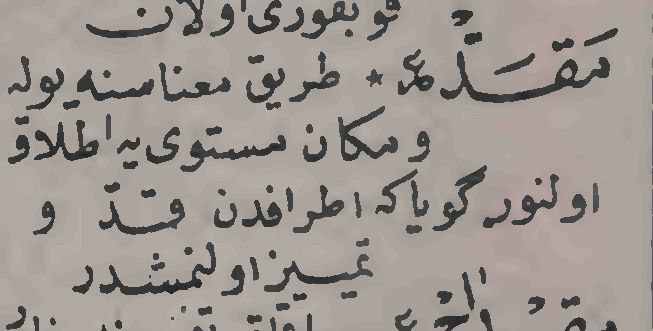 قو بقوری اولان
مَقَدّ ع * طریق معناسنه یوله
و مکان مستوی یه اطلاق
اولنور گویا که اطرافدن قدّ و
تمییز اولنمشدر